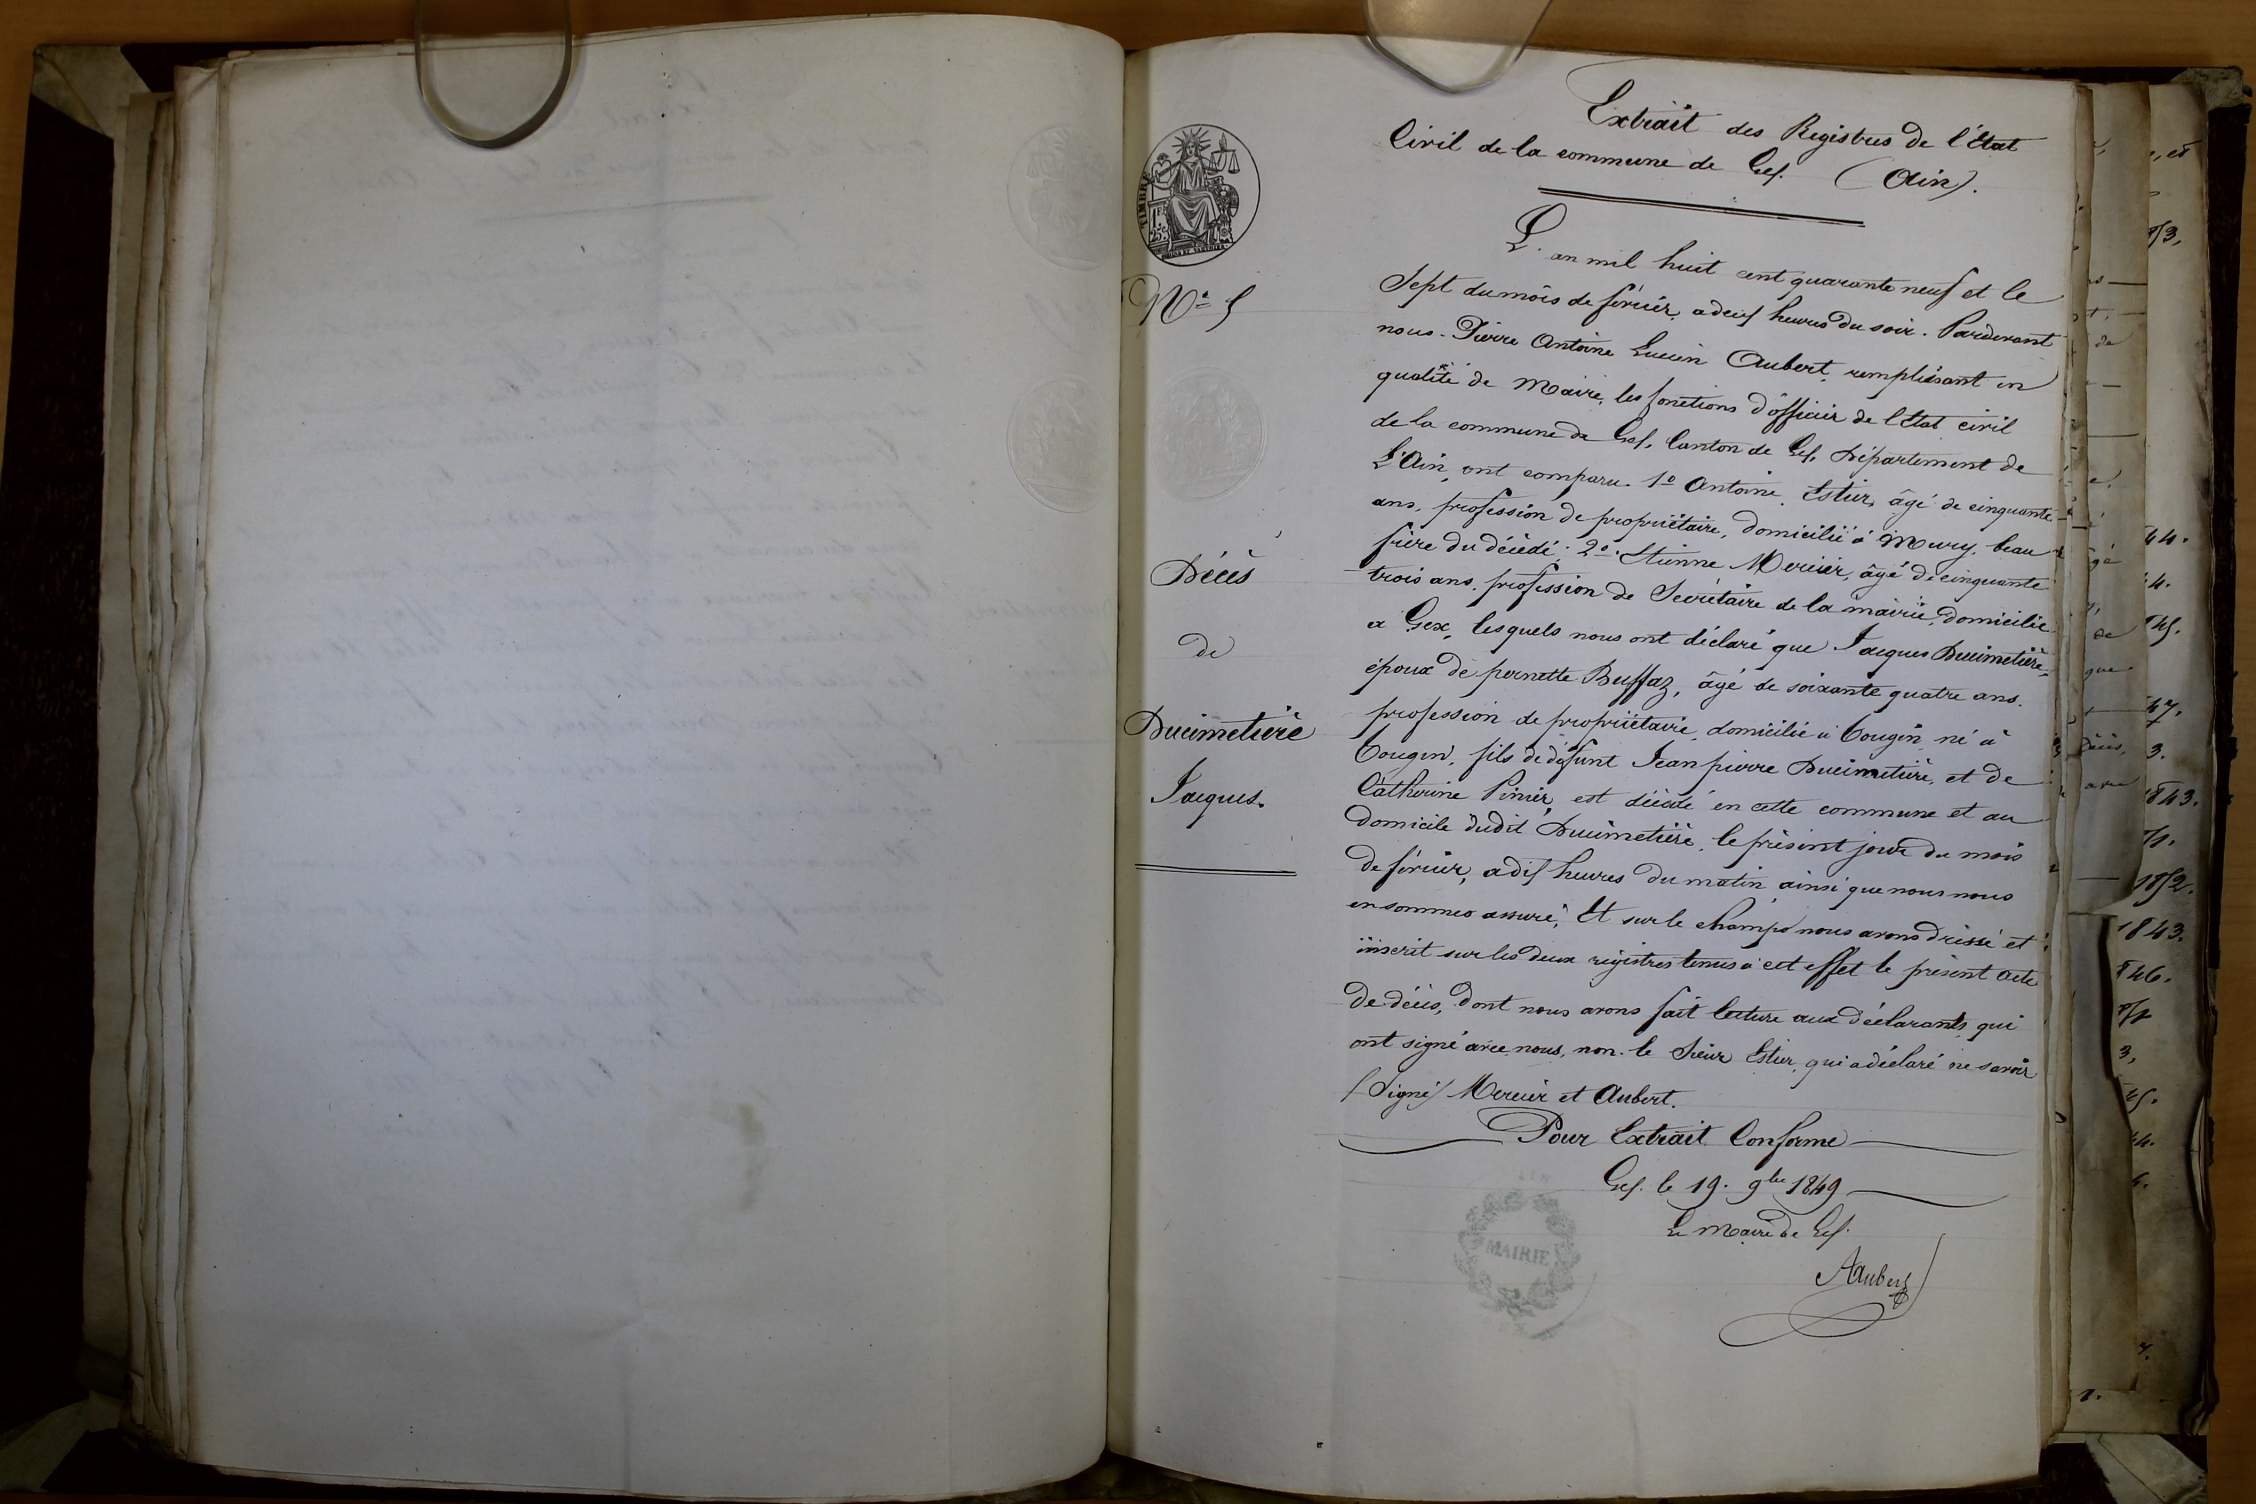 Extrait des Registres de l'état
Civil de la commune de Gex. (Ain).
TIMBRE
1F.
25c.
N° 5
L'an mil huit cent quarante neuf et le
Sept du mois de février, a deux heures du soir. Pardevant
nous. Pierre Antoine Lucien Aubert, remplissant en
qualité de Maire, les fonctions d'officier de l'Etat civil
de la commune de Gex, Canton de Gex, Département de
L'Ain, ont comparu. 1° Antoine Estier, âgé de cinquante
ans, profession de propriétaire, domicilié à Mury, beau
frère du décédé; 2°. Etienne Mercier, âgé de cinquante
trois ans, profession de Secrétaire de la mairie, domicilié
a Gex, lesquels nous ont déclaré que Jacques Ducimetière,
époux de pernette Buffaz, âgé de soixante quatre ans.
profession de propriétaire, domicilié à Tougin, né à
Tougin, fils de défunt Jean pierre Ducimetière, et de
Catherine Pinier, est décédé en cette commune et au
domicile dudit Ducimetière, le présent jour du mois
de février, a dix heures du matin ainsi que nous nous
en sommes assuré; Et sur le champs nous avons dréssé et
inscrit sur les deux régistres tenus à cet effet le présent acte
de décès, dont nous avons fait lecture aux déclarants, qui
ont signé avec nous, non le Sieur Estier, qui a déclaré ne savoir
/ Signé / Mercier et Aubert.
Pour Extrait Conforme
Gex. le 19. 9bre 1849
Le Maire de Gex.
AAubert
MAIRIE
Décès
de
Ducimetière
Jacques.